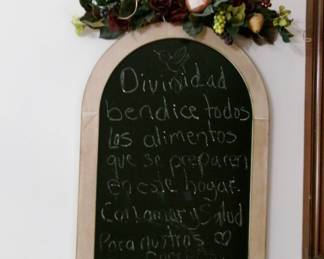 Divinidad
bendice todos
Los alimentos
que se preparen
en este hogar.
Con amor y Salud
Para nustros